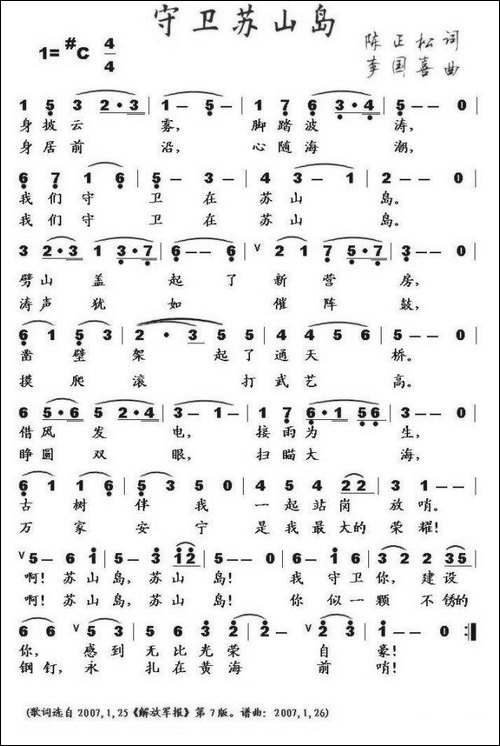 守卫苏山岛
1=#C 4/4
陈正松 词
李国喜 曲
1 5 3 2·3 | 1 - 5 | 1 7 6 3·4 | 5 - - 0 |
身披云雾， 脚踏波涛，
身居前沿， 心随海潮，
6 7 1 6 | 5 - - 3 | 4 3 - 1 | 2 - - 0 |
我们守卫在苏山岛。
我们守卫在苏山岛。
3 2·3 1 3·7 | 6 - - 6 | ∨ 2 1 7 5·7 | 3 - - 0 |
劈山盖起了新营房，
涛声犹如催阵鼓，
6 1 5 3 | 2·3 5 5 | 4 4 5 6 | 5 - - 0 |
凿壁架起了通天桥。
摸爬滚打武艺高。
6 5·6 5 2·4 | 3 - 1 - | 1 7 6·1 5 6 | 3 - - 0 |
借风发电， 接雨为生，
睁圆双眼， 扫瞄大海，
6 1 1 6 | 5 3 5 0 | 4 5 4 2 2 | 3 1 - - |
古树伴我一起站岗放哨。
万家安宁是我最大的荣耀！
∨ 5 - 6 1 | 5 - 3 1 2 | 5 - - 0 | 6 - 1 6 | 3 2 2 3 5 |
啊！苏山岛，苏山岛！ 我守卫你，建设
啊！苏山岛，苏山岛！ 你似一颗不锈的
6 6 ∨ 5 3 | 5 5 3 2 | 2 - - - | 1 - - 0 :‖
你，感到无比光荣自豪！
钢钉，永扎在黄海前哨！
(歌词选自2007,1,25《解放军报》第7版。谱曲：2007,1,26)